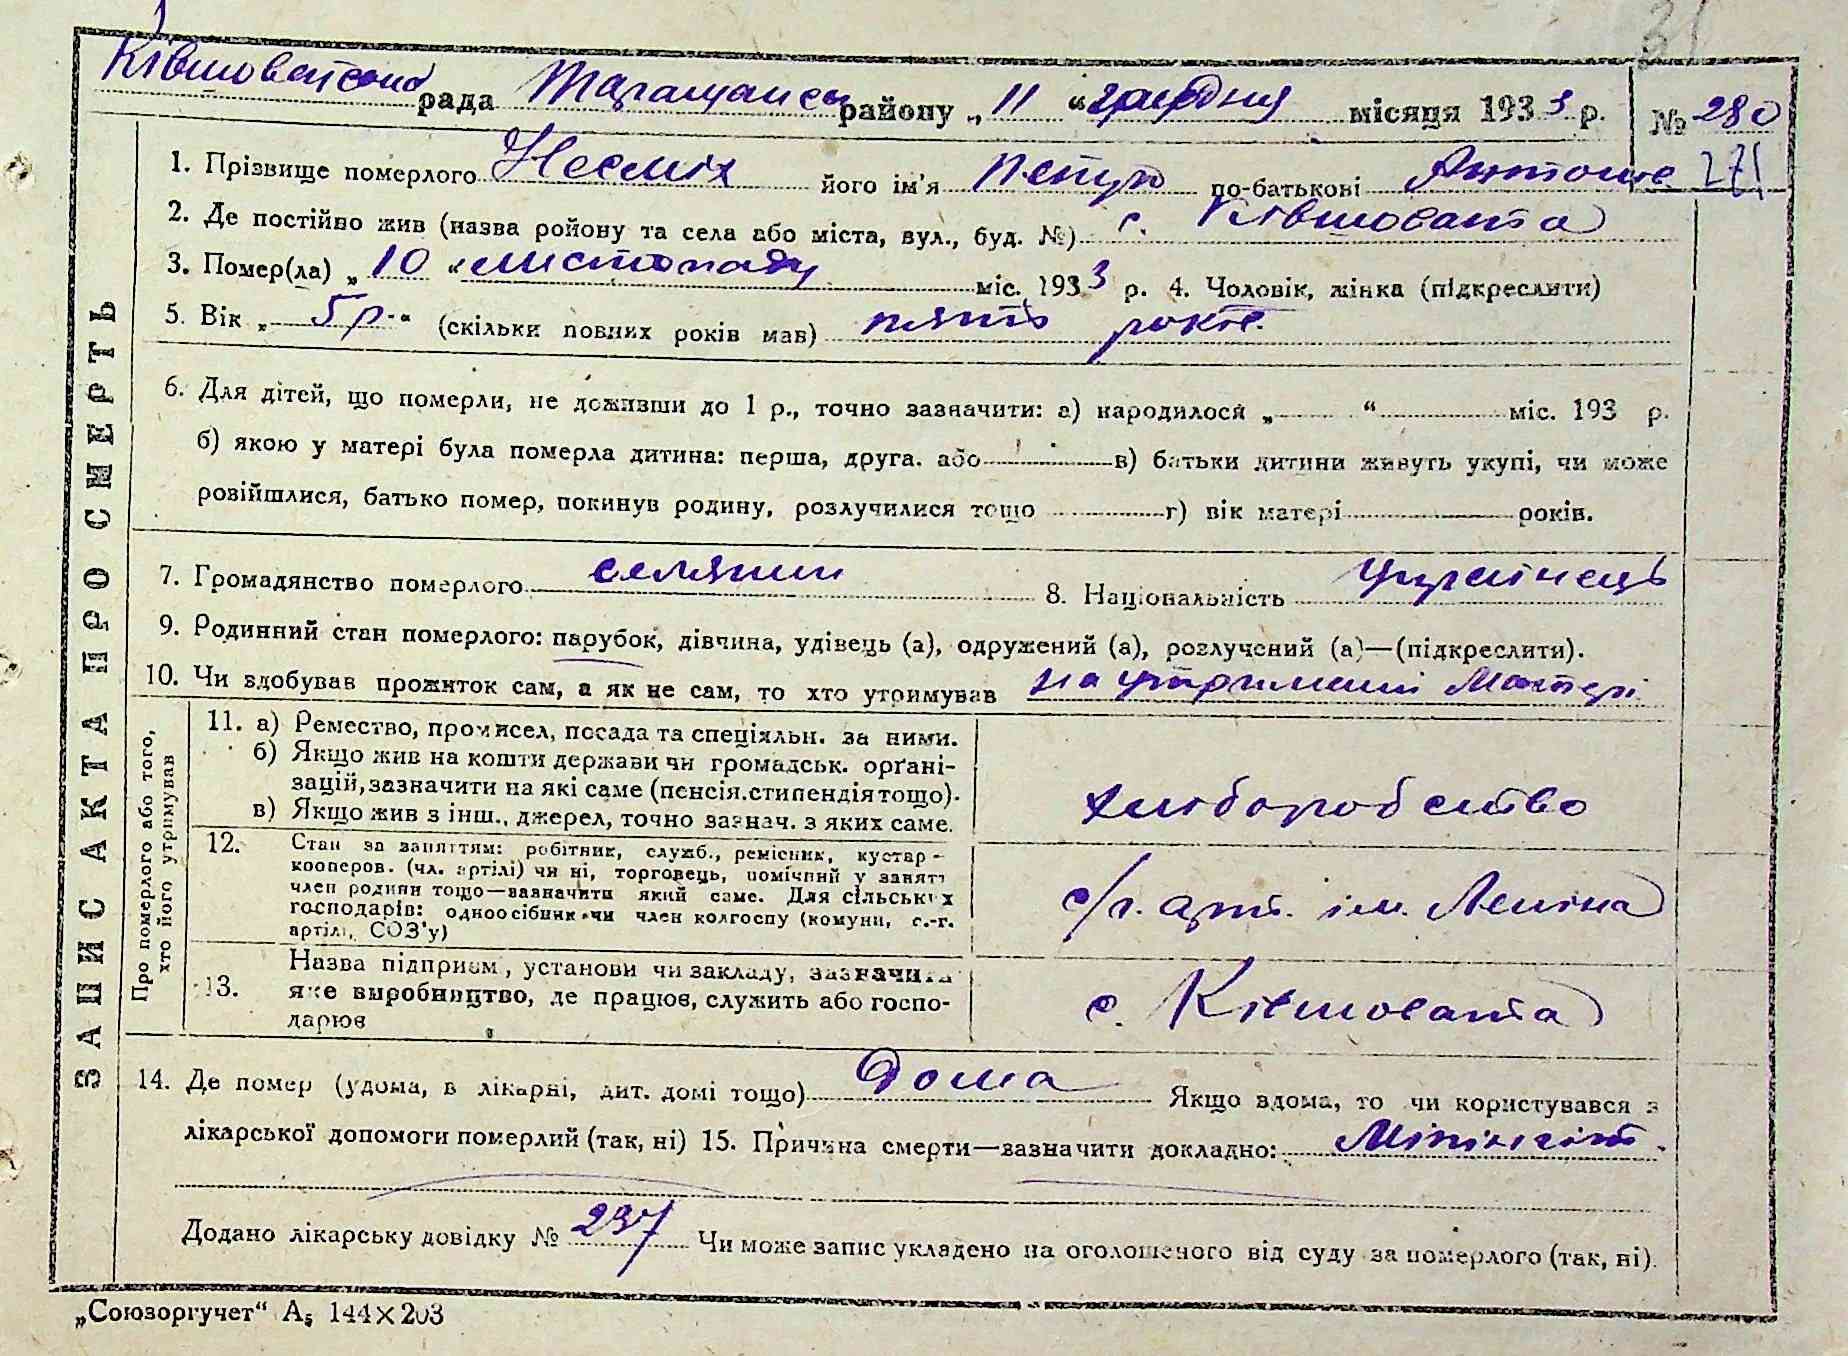 31
Ківшоватська рада Таращансь району „ 11 “ грудня місяця 1933 р. № 280
1. Прізвище померлого його ім'я Петро по-батькові Антонів 271
2. Де постійво жив (назва ройону та села або міста, вул., буд. №) с. Ківшовата
3. Помер(ла) „ 10 “ листопаду міс. 1933 р. 4. Чоловік, жінка (підкреслити)
5. Вік „ 5 р. “ (скільки повних років мав) пять років.
6. Для дітей, що померли, не доживши до 1 р., точно зазначити: а) народилося „ “ міс. 193 р.
б) якою у матері була померла дитина: перша, друга. або в) батьки дитини живуть укупі, чи може
розійшлися, батько помер, покинув родину, розлучилися тощо г) вік матері років.
7. Громадянство померлого селянин 8. Національність Українець
9. Родинний стан померлого: парубок, дівчина, удівець (а), одружений (а), розлучений (а)—(підкреслити).
10. Чи здобував прожиток сам, а як не сам, то хто утримував на утриманні Матері
ЗАПИС АКТА ПРО СМЕРТЬ
Про померлого або того,
хто його утримував
11. а) Ремество, промисел, посада та спеціяльн. за ними.
б) Якщо жив на кошти держави чи громадськ. орґані-
зацій, зазначити на які саме (пенсія. стипендія тощо).
в) Якщо жив з інш., джерел, точно зазнач. з яких саме.
хліборобство
12. Стан за заняттям: робітник, служб., ремісник, кустар-
кооперов. (чл. артілі) чи ні, торговець, помічний у занятт
член родини тощо—зазначити який саме. Для сільських
господарів: одноосібник чи член колгоспу (комуни, с.-г.
артілі, СОЗ'у)
с/г. арт. ім. Леніна
13. Назва підприєм, установи чи закладу, зазначити
яке виробництво, де працює, служить або госпо-
дарює
с. Ківшовата
14. Де помер (удома, в лікарні, дит. домі тощо) Дома Якщо вдома, то чи користувався з
лікарської допомоги померлий (так, ні) 15. Причина смерти—зазначити докладно: Мінінгіт.
Додано лікарську довідку № 237 Чи може запис укладено на оголошеного від суду за померлого (так, ні).
„Союзоргучет“ А5 144×203